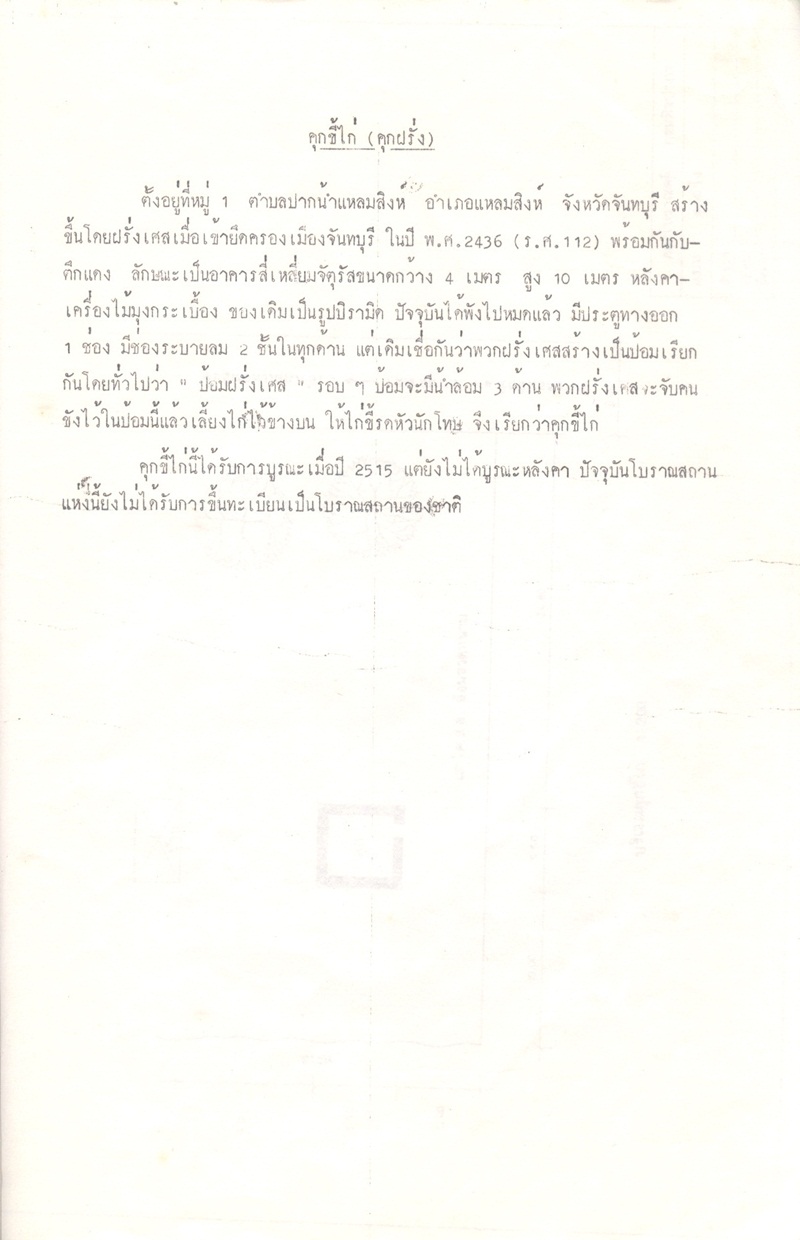 คุกขี้ไก่ (คุกฝรั่ง)
ตั้งอยู่ที่หมู่ 1 ตำบลปากน้ำแหลมสิงห์ อำเภอแหลมสิงห์ จังหวัดจันทบุรี สร้าง
ขึ้นโดยฝรั่งเศสเมื่อเข้ายึดครองเมืองจันทบุรี ในปี พ.ศ.2436 (ร.ศ.112) พร้อมกันกับ-
ตึกแดง ลักษณะเป็นอาคารสี่เหลี่ยมจัตุรัสขนาดกว้าง 4 เมตร สูง 10 เมตร หลังคา-
เครื่องไม้มุงกระเบื้อง ของเดิมเป็นรูปปิรามิด ปัจจุบันได้พังไปหมดแล้ว มีประตูทางออก
1 ช่อง มีช่องระบายลม 2 ชั้นในทุกด้าน แต่เดิมเชื่อกันว่าพวกฝรั่งเศสสร้างเป็นป้อมเรียก
กันโดยทั่วไปว่า " ป้อมฝรั่งเศส " รอบ ๆ ป้อมจะมีน้ำล้อม 3 ด้าน พวกฝรั่งเศสจะจับคน
ขังไว้ในป้อมนี้แล้วเลี้ยงไก่ไว้ข้างบน ให้ไก่ขี้รดหัวนักโทษ จึงเรียกว่าคุกขี้ไก่
คุกขี้ไก่นี้ได้รับการบูรณะเมื่อปี 2515 แต่ยังไม่ได้บูรณะหลังคา ปัจจุบันโบราณสถาน
แห่งนี้ยังไม่ได้รับการขึ้นทะเบียนเป็นโบราณสถานของชาติ